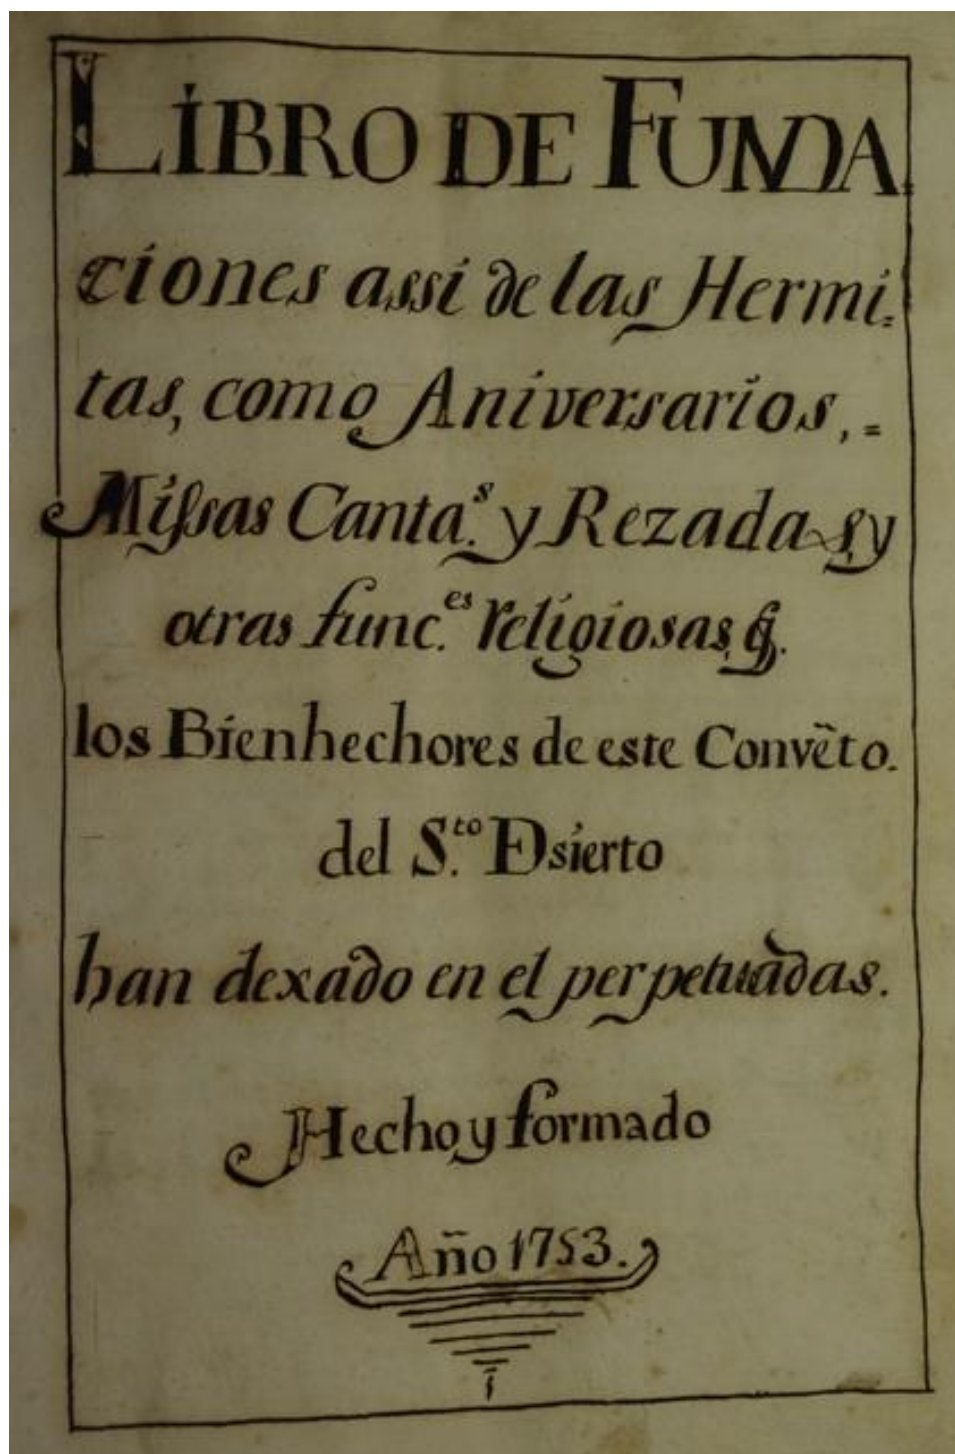 LIBRO DE FUNDA
ciones assi de las Hermi=
tas, como Aniversarios, =
Missas Canta.s y Rezadas, y
otras func.es religiosas, q.
los Bienhechores de este Convẽto.
del S.to Dsierto
han dexado en el perpetuadas.
Hecho y formado
Año 1753.